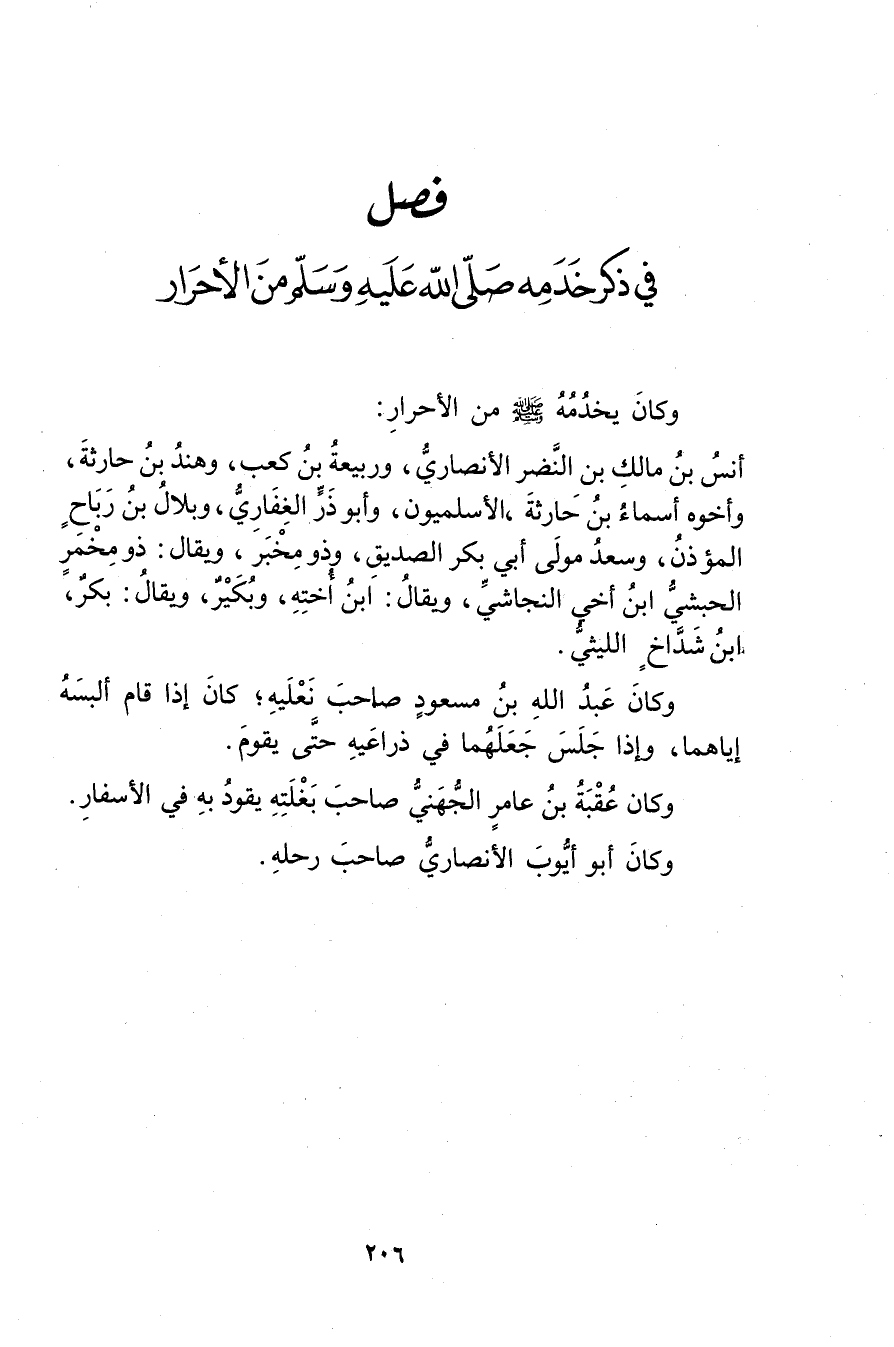 فصل
في ذكر خَدَمِه صَلّى اللّه عَلَيهِ وَسَلّم منَ الأحرَار
وكانَ يخدُمُهُ ﷺ من الأحرارِ:
أنسُ بنُ مالكِ بن النَّضر الأنصاريُّ، وربيعةُ بنُ كعب، وهندُ بنُ حارثةَ،
وأخوه أسماءُ بنُ حَارثةَ ،الأسلميون، وأبو ذَرٍّ الغِفَارِيُّ، وبلالُ بنُ رَبَاحٍ
المؤذنُ، وسعدُ مولَى أبي بكر الصديقِ، وذو مِخْبَرٍ، ويقال: ذو مِخْمَرٍ
الحبشيُّ ابنُ أخي النجاشيِّ، ويقالُ: ابنُ أُختِهِ، وبُكَيْرٌ، ويقالُ: بكرٌ،
ابنُ شَدَّاخٍ الليثيُّ.
وكانَ عَبدُ اللهِ بنُ مسعودٍ صاحبَ نَعْلَيهِ؛ كانَ إذا قام ألبسَهُ
إياهما، وإذا جَلَسَ جَعَلَهُما في ذراعَيهِ حتَّى يقومَ.
وكان عُقْبَةُ بنُ عامرٍ الجُهَنيُّ صاحبَ بَغْلَتِهِ يقودُ بهِ في الأسفارِ.
وكانَ أبو أيُّوبَ الأنصاريُّ صاحبَ رحلهِ.
٢٠٦